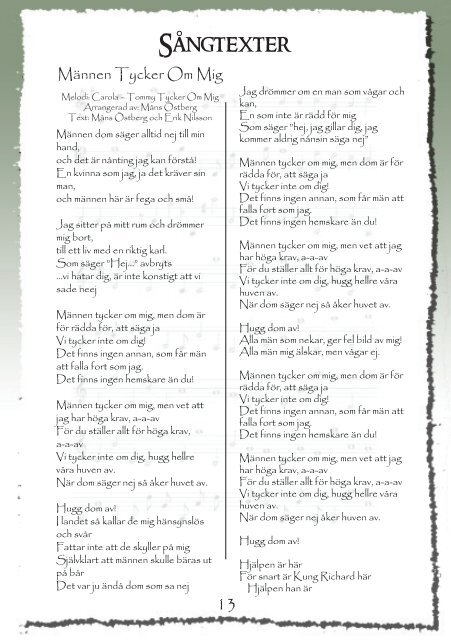 SÅNGTEXTER
Männen Tycker Om Mig
Melodi: Carola – Tommy Tycker Om Mig
Arrangerad av: Måns Östberg
Text: Måns Östberg och Erik Nilsson
Männen dom säger alltid nej till min
hand,
och det är nånting jag kan förstå!
En kvinna som jag, ja det kräver sin
man,
och männen här är fega och små!
Jag sitter på mitt rum och drömmer
mig bort,
till ett liv med en riktig karl.
Som säger "Hej..." avbryts
...vi hatar dig, är inte konstigt att vi
sade neej
Männen tycker om mig, men dom är
för rädda för, att säga ja
Vi tycker inte om dig!
Det finns ingen annan, som får män
att falla fort som jag.
Det finns ingen hemskare än du!
Männen tycker om mig, men vet att
jag har höga krav, a-a-av
För du ställer allt för höga krav,
a-a-av
Vi tycker inte om dig, hugg hellre
våra huven av.
När dom säger nej så åker huvet av.
Hugg dom av!
I landet så kallar de mig hänsynslös
och svår
Fattar inte att de skyller på mig
Självklart att männen skulle bäras ut
på bår
Det var ju ändå dom som sa nej
Jag drömmer om en man som vågar och
kan,
En som inte är rädd för mig
Som säger "hej, jag gillar dig, jag
kommer aldrig nånsin säga nej"
Männen tycker om mig, men dom är för
rädda för, att säga ja
Vi tycker inte om dig!
Det finns ingen annan, som får män att
falla fort som jag.
Det finns ingen hemskare än du!
Männen tycker om mig, men vet att jag
har höga krav, a-a-av
För du ställer allt för höga krav, a-a-av
Vi tycker inte om dig, hugg hellre våra
huven av.
När dom säger nej så åker huvet av.
Hugg dom av!
Alla män som nekar, ger fel bild av mig!
Alla män mig älskar, men vågar ej.
Männen tycker om mig, men dom är för
rädda för, att säga ja
Vi tycker inte om dig!
Det finns ingen annan, som får män att
falla fort som jag.
Det finns ingen hemskare än du!
Männen tycker om mig, men vet att jag
har höga krav, a-a-av
För du ställer allt för höga krav, a-a-av
Vi tycker inte om dig, hugg hellre våra
huven av.
När dom säger nej åker huven av.
Hugg dom av!
Hjälpen är här
För snart är Kung Richard här
Hjälpen han är
13